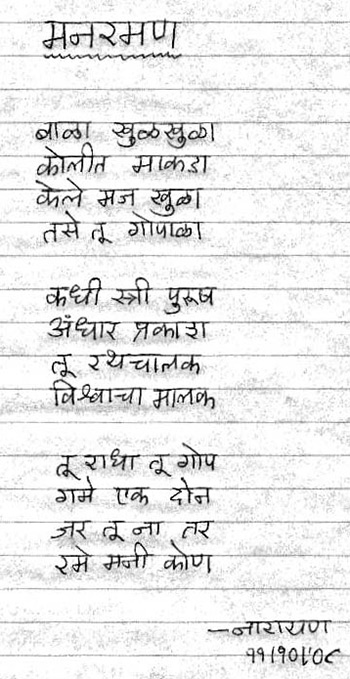 मनरमण
बाळा खुळखुळा
कोलीत माकडा
केले मज खुळा
तसे तू गोपाळा
कधी स्त्री पुरूष
अंधार प्रकाश
तू रथचालक
विश्वाचा मालक
तू राधा तू गोप
गमे एक दोन
जर तू ना तर
रमे मनी कोण
—नारायण
११/१०/'०८